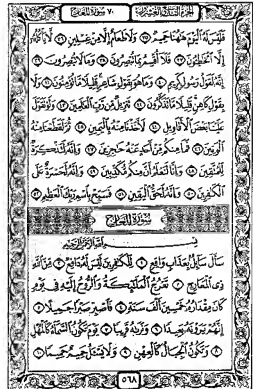 الجزء التاسع والعشرون ٧٠ سورة المعارج
فَلَيْسَ لَهُ الْيَوْمَ هَٰهُنَا حَمِيمٌ ٣٥ وَلَا طَعَامٌ إِلَّا مِنْ غِسْلِينٍ ٣٦ لَّا يَأْكُلُهُ
إِلَّا الْخَٰطِـُٔونَ ٣٧ فَلَا أُقْسِمُ بِمَا تُبْصِرُونَ ٣٨ وَمَا لَا تُبْصِرُونَ ٣٩
إِنَّهُ لَقَوْلُ رَسُولٍ كَرِيمٍ ٤٠ وَمَا هُوَ بِقَوْلِ شَاعِرٍ قَلِيلًا مَّا تُؤْمِنُونَ ٤١ وَلَا
بِقَوْلِ كَاهِنٍ قَلِيلًا مَّا تَذَكَّرُونَ ٤٢ تَنزِيلٌ مِّن رَّبِّ الْعَٰلَمِينَ ٤٣ وَلَوْ تَقَوَّلَ
عَلَيْنَا بَعْضَ الْأَقَاوِيلِ ٤٤ لَأَخَذْنَا مِنْهُ بِالْيَمِينِ ٤٥ ثُمَّ لَقَطَعْنَا مِنْهُ
الْوَتِينَ ٤٦ فَمَا مِنكُم مِّنْ أَحَدٍ عَنْهُ حَٰجِزِينَ ٤٧ وَإِنَّهُ لَتَذْكِرَةٌ
لِّلْمُتَّقِينَ ٤٨ وَإِنَّا لَنَعْلَمُ أَنَّ مِنكُم مُّكَذِّبِينَ ٤٩ وَإِنَّهُ لَحَسْرَةٌ عَلَى
الْكَٰفِرِينَ ٥٠ وَإِنَّهُ لَحَقُّ الْيَقِينِ ٥١ فَسَبِّحْ بِاسْمِ رَبِّكَ الْعَظِيمِ ٥٢
سُورَةُ الْمَعَارِجِ
بِسْمِ اللَّهِ الرَّحْمَٰنِ الرَّحِيمِ
سَأَلَ سَائِلٌ بِعَذَابٍ وَاقِعٍ ١ لِّلْكَٰفِرِينَ لَيْسَ لَهُ دَافِعٌ ٢ مِّنَ اللَّهِ
ذِي الْمَعَارِجِ ٣ تَعْرُجُ الْمَلَٰئِكَةُ وَالرُّوحُ إِلَيْهِ فِي يَوْمٍ
كَانَ مِقْدَارُهُ خَمْسِينَ أَلْفَ سَنَةٍ ٤ فَاصْبِرْ صَبْرًا جَمِيلًا ٥
إِنَّهُمْ يَرَوْنَهُ بَعِيدًا ٦ وَنَرَىٰهُ قَرِيبًا ٧ يَوْمَ تَكُونُ السَّمَاءُ كَالْمُهْلِ
٨ وَتَكُونُ الْجِبَالُ كَالْعِهْنِ ٩ وَلَا يَسْـَٔلُ حَمِيمٌ حَمِيمًا ١٠
٥٦٨